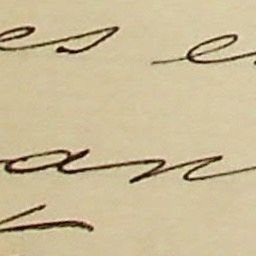 es e
an